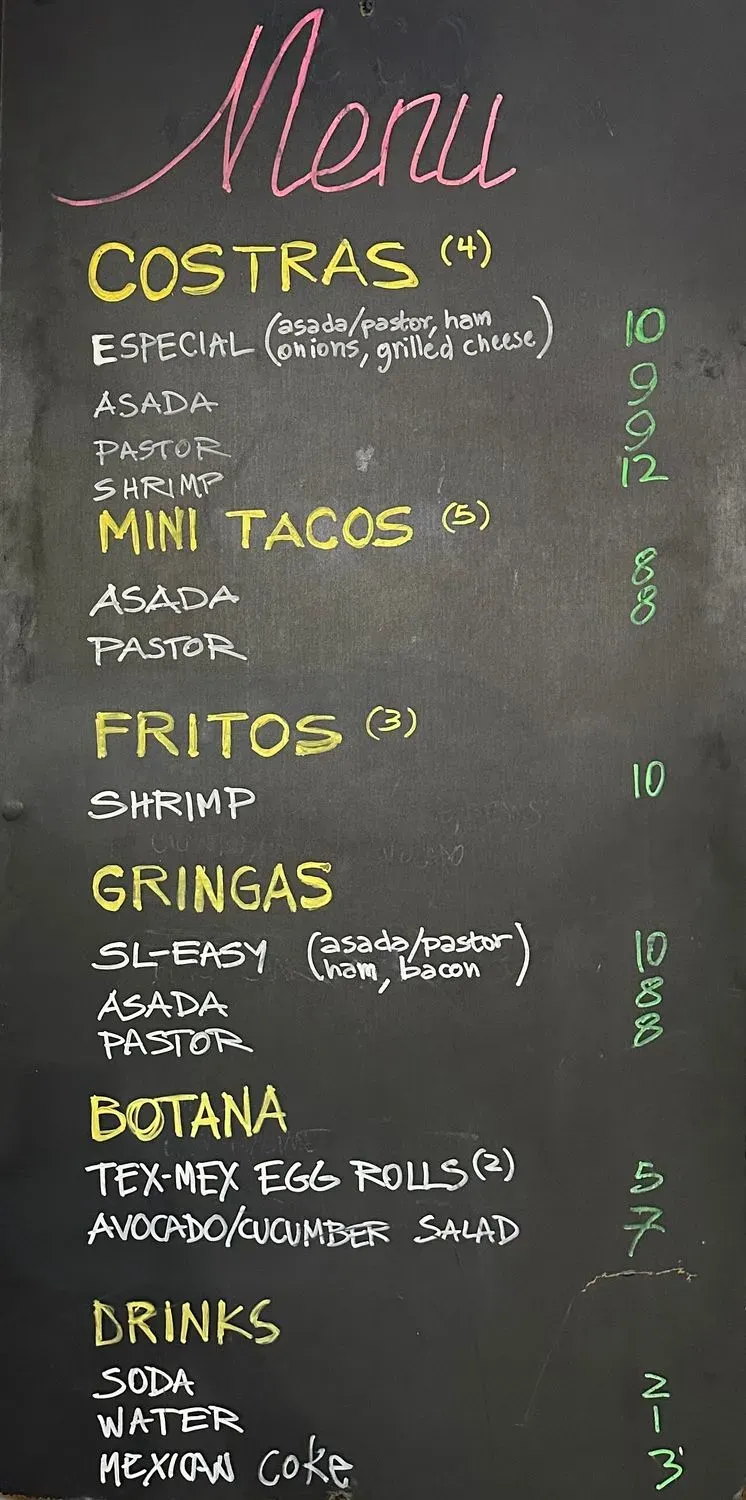 Menu
COSTRAS (4)
ESPECIAL (asada/pastor, ham onions, grilled cheese) 10
ASADA 9
PASTOR 9
SHRIMP 12
MINI TACOS (5)
ASADA 8
PASTOR 8
FRITOS (3)
SHRIMP 10
GRINGAS
SL-EASY (asada/pastor ham, bacon) 10
ASADA 8
PASTOR 8
BOTANA
TEX-MEX EGG ROLLS (2) 5
AVOCADO/CUCUMBER SALAD 7
DRINKS
SODA 2
WATER 1
MEXICAN Coke 3